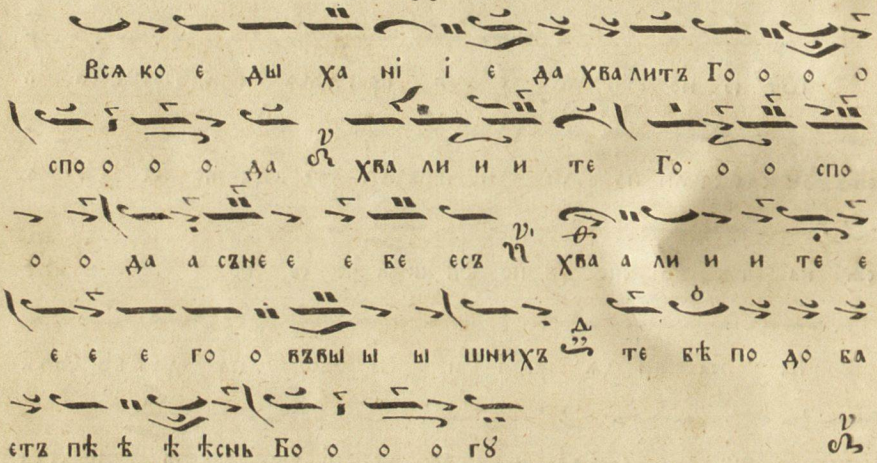 Всѧ ко е ды ха нї ї е да хва литъ Го о о о
спо о о о да хва ли и и те Го о о спо
о о да а сънее е бе есъ хва а ли и и те е
е е е го о въвы ы ы шнихъ те бѣ по до ба
етъ пѣ ѣ ѣ ѣснь Бо о о о гꙋ